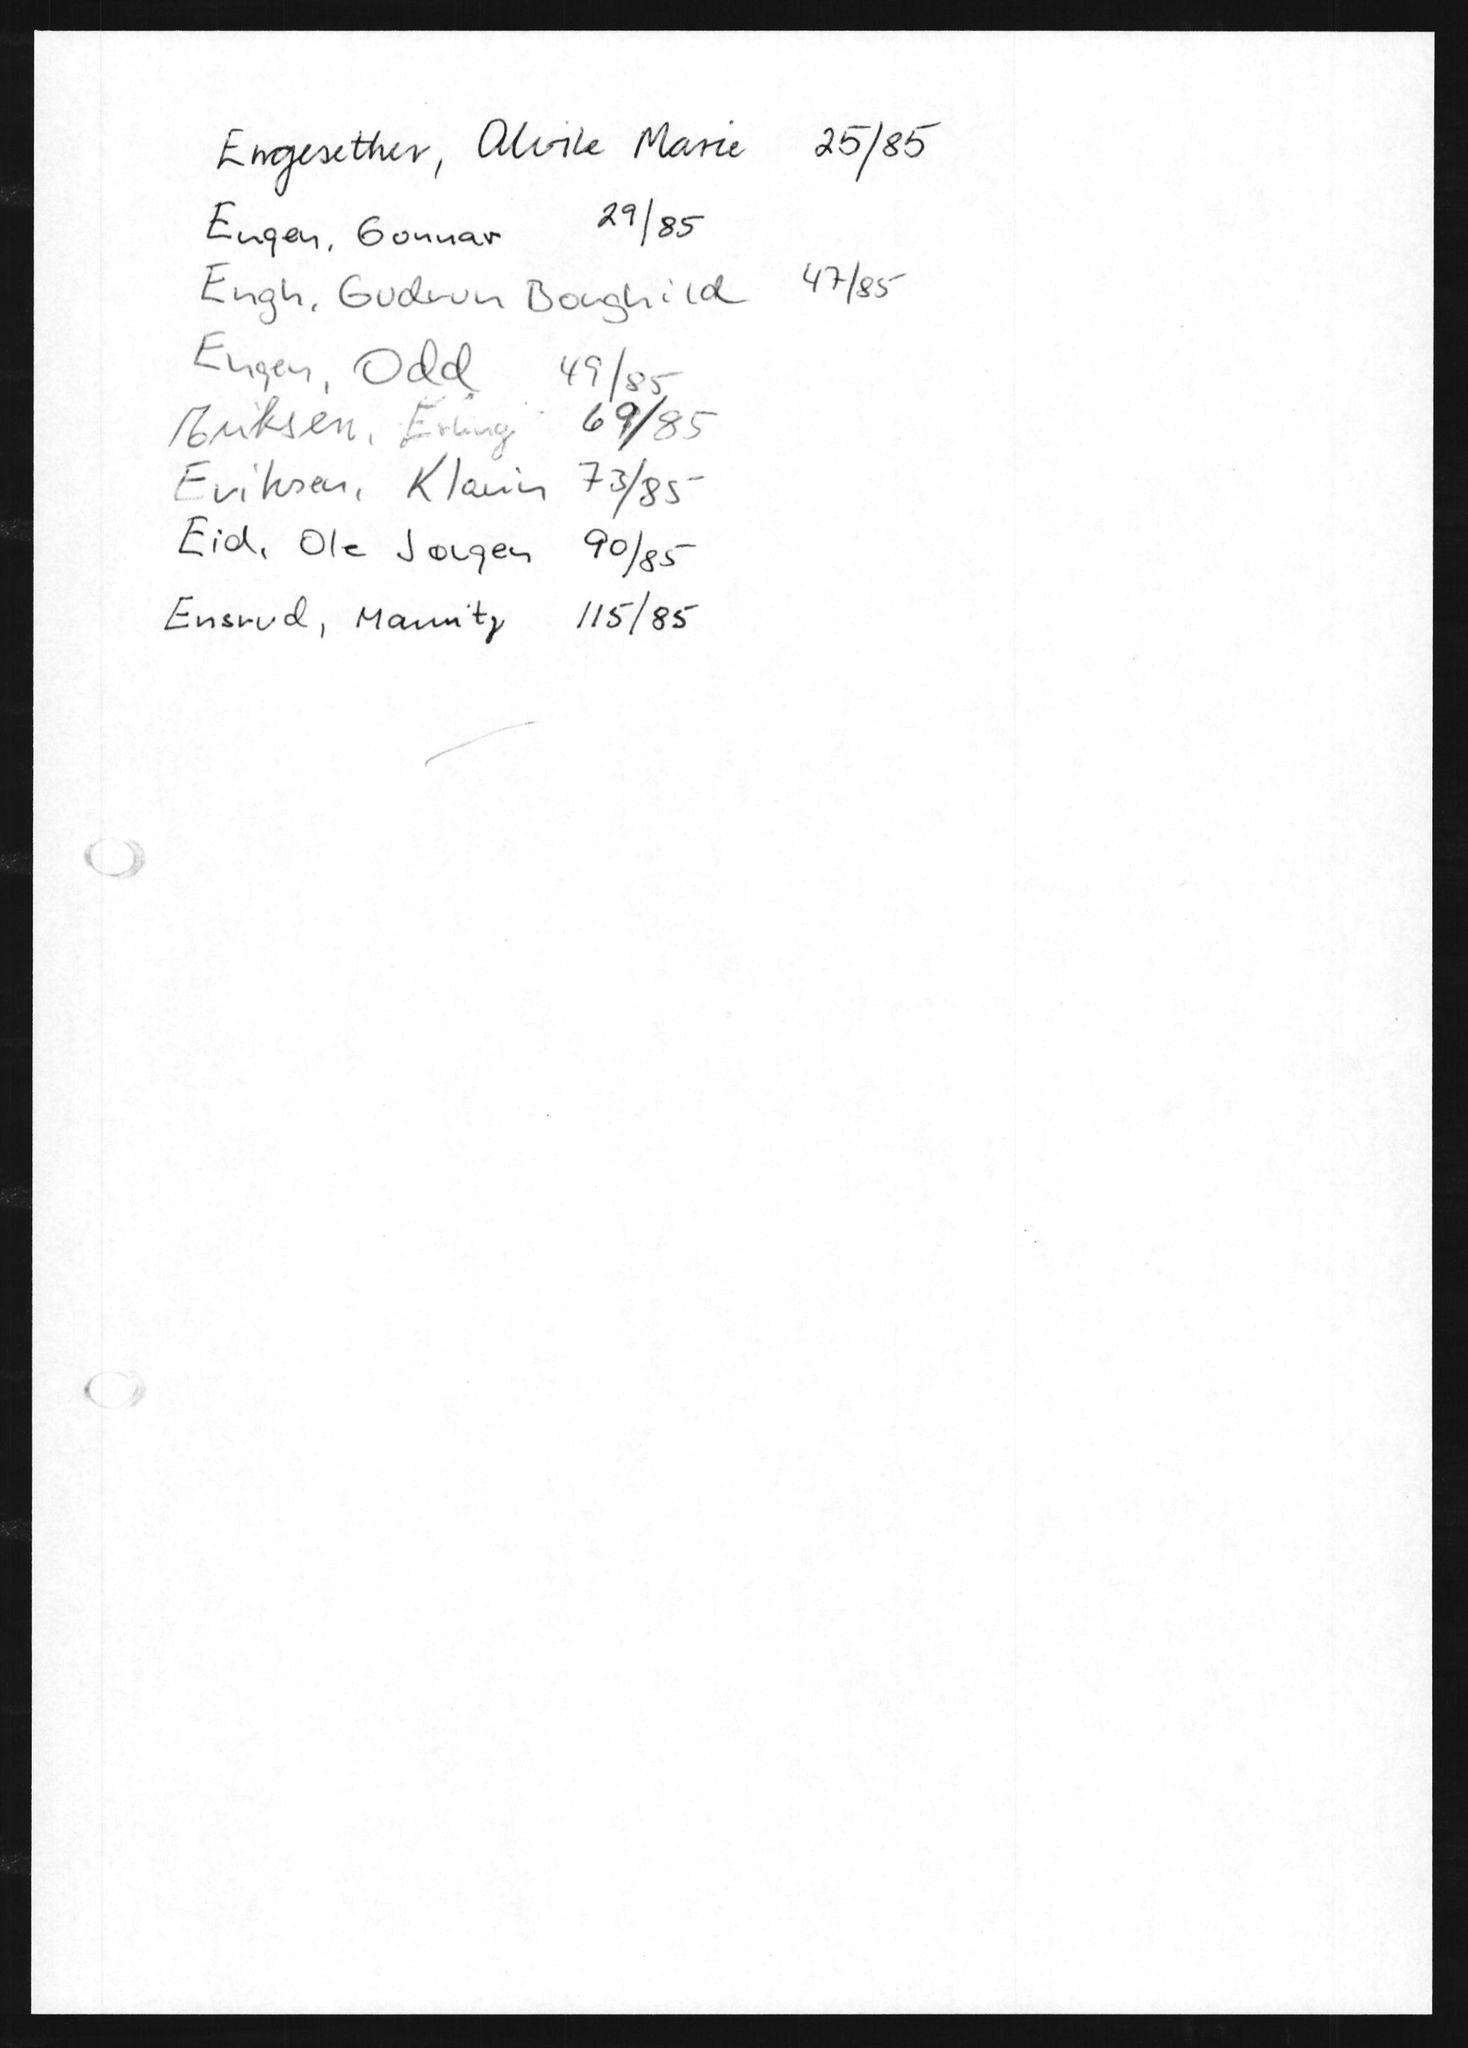 Engesether, Alvile Marie 25/85
Engen, Gunnar 29/85
Engh, Gudrun Borghild 47/85
Engen, Odd 49/85
Eriksen, Erling 69/85
Eriksen, 73/85
Eid, Ole Jørgen 90/85
Ensrud, Mauritz 115/85